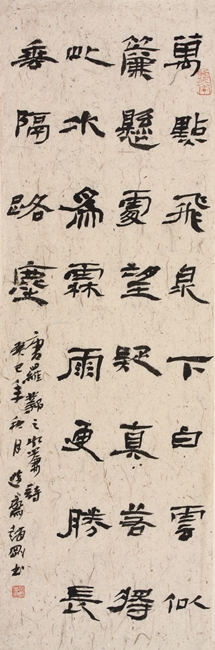 萬點飛泉下白雲似
簾懸處望疑真若將
此水爲霖雨更勝長
垂隔路塵
唐羅鄴之水簾詩
癸巳年秋月書